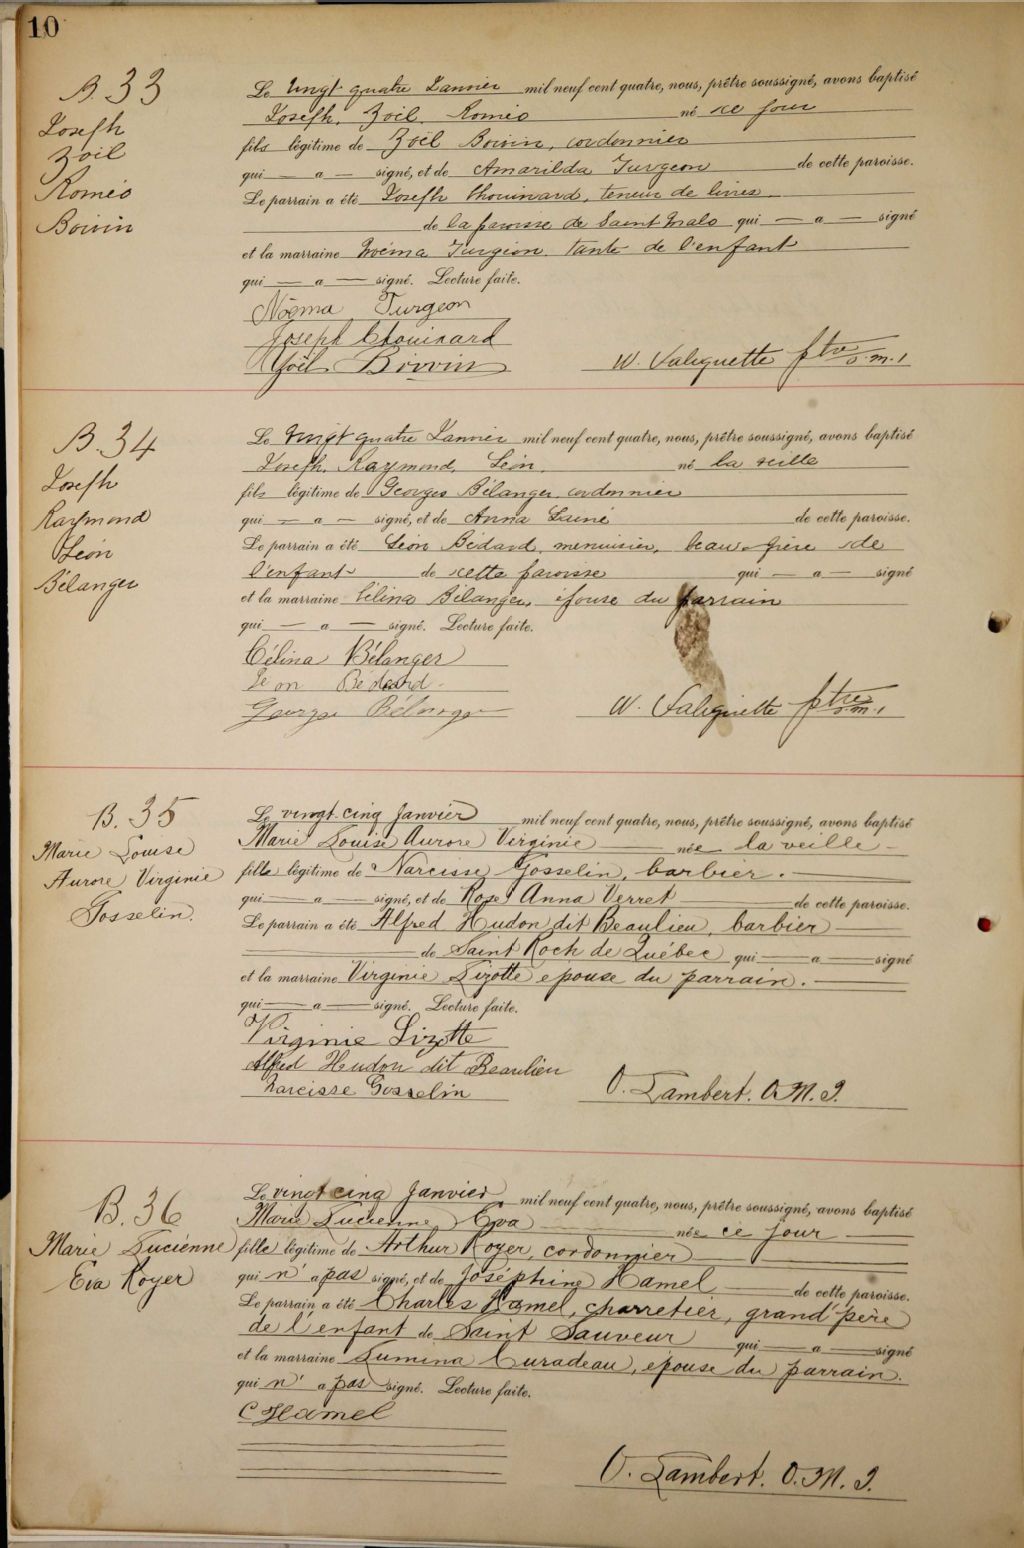 10
B. 33
Joseph
Zoïl
Roméo
Boivin
Le vingt quatre Janvier mil neuf cent quatre, nous, prêtre soussigné, avons baptisé
Joseph, Zoïl, Roméo né ce jour
fils légitime de Zoël Boivin, cordonnier
qui — a — signé, et de Amarilda Turgeon de cette paroisse.
Le parrain a été Joseph Chouinard, teneur de livres
de la paroisse de Saint Malo qui — a — signé
et la marraine Noéma Turgeon tante de l'enfant
qui — a — signé. Lecture faite.
Noëma Turgeon
Joseph Chouinard
Zoël Boivin
W. Valiquette ptre o.m.i
B. 34
Joseph
Raymond
Léon
Bélanger
Le vingt quatre Janvier mil neuf cent quatre, nous, prêtre soussigné, avons baptisé
Joseph, Raymond, Léon, né la veille
fils légitime de Georges Bélanger, cordonnier
qui — a — signé, et de Anna Lainé de cette paroisse.
Le parrain a été Léon Bédard, menuisier, beau-frère de
l'enfant de cette paroisse qui — a — signé
et la marraine Célina Bélanger, épouse du parrain
qui — a — signé. Lecture faite.
Célina Bélanger
Léon Bédard
George Bélanger
W. Valiquette ptre o.m.i
B. 35
Marie Louise
Aurore Virginie
Gosselin.
Le vingt-cinq Janvier mil neuf cent quatre, nous, prêtre soussigné, avons baptisé
Marie Louise Aurore Virginie — née la veille —
fille légitime de Narcisse Gosselin, barbier. —
qui — a — signé, et de Rose Anna Verret — de cette paroisse.
Le parrain a été Alfred Hudon dit Beaulieu, barbier —
— de Saint Roch de Québec qui — a — signé
et la marraine Virginie Lizotte épouse du parrain. —
qui — a — signé. Lecture faite.
Virginie Lizotte
Alfred Hudon dit Beaulieu
Narcisse Gosselin
O. Lambert. O.M.I.
B. 36
Marie Lucienne
Eva Royer
Le vingt cinq Janvier mil neuf cent quatre, nous, prêtre soussigné, avons baptisé
Marie Lucienne Eva — née ce jour —
fille légitime de Arthur Royer, cordonnier —
qui n' a pas signé, et de Joséphine Hamel — de cette paroisse.
Le parrain a été Charles Hamel, charretier, grand'père
de l'enfant de Saint Sauveur qui — a — signé
et la marraine Lumina Curadeau, épouse du parrain.
qui n' a pas signé. Lecture faite.
C Hamel
O. Lambert. O.M.I.